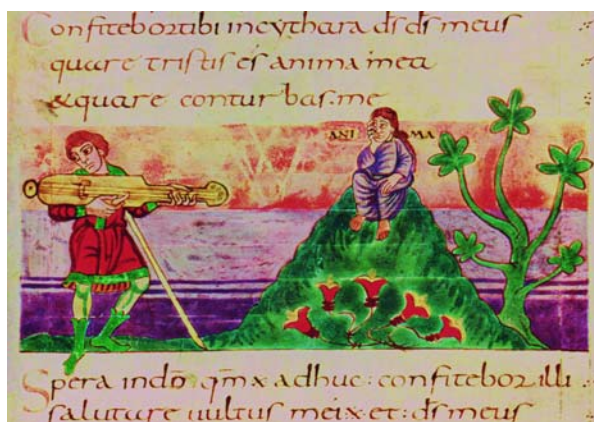 Confitebortibi incythara ds ds meus
quare tristis es anima mea
& quare conturbas.me
ANI MA
Spera indo qm x adhuc: confitebor illi
salutare uultus mei x et: ds meus